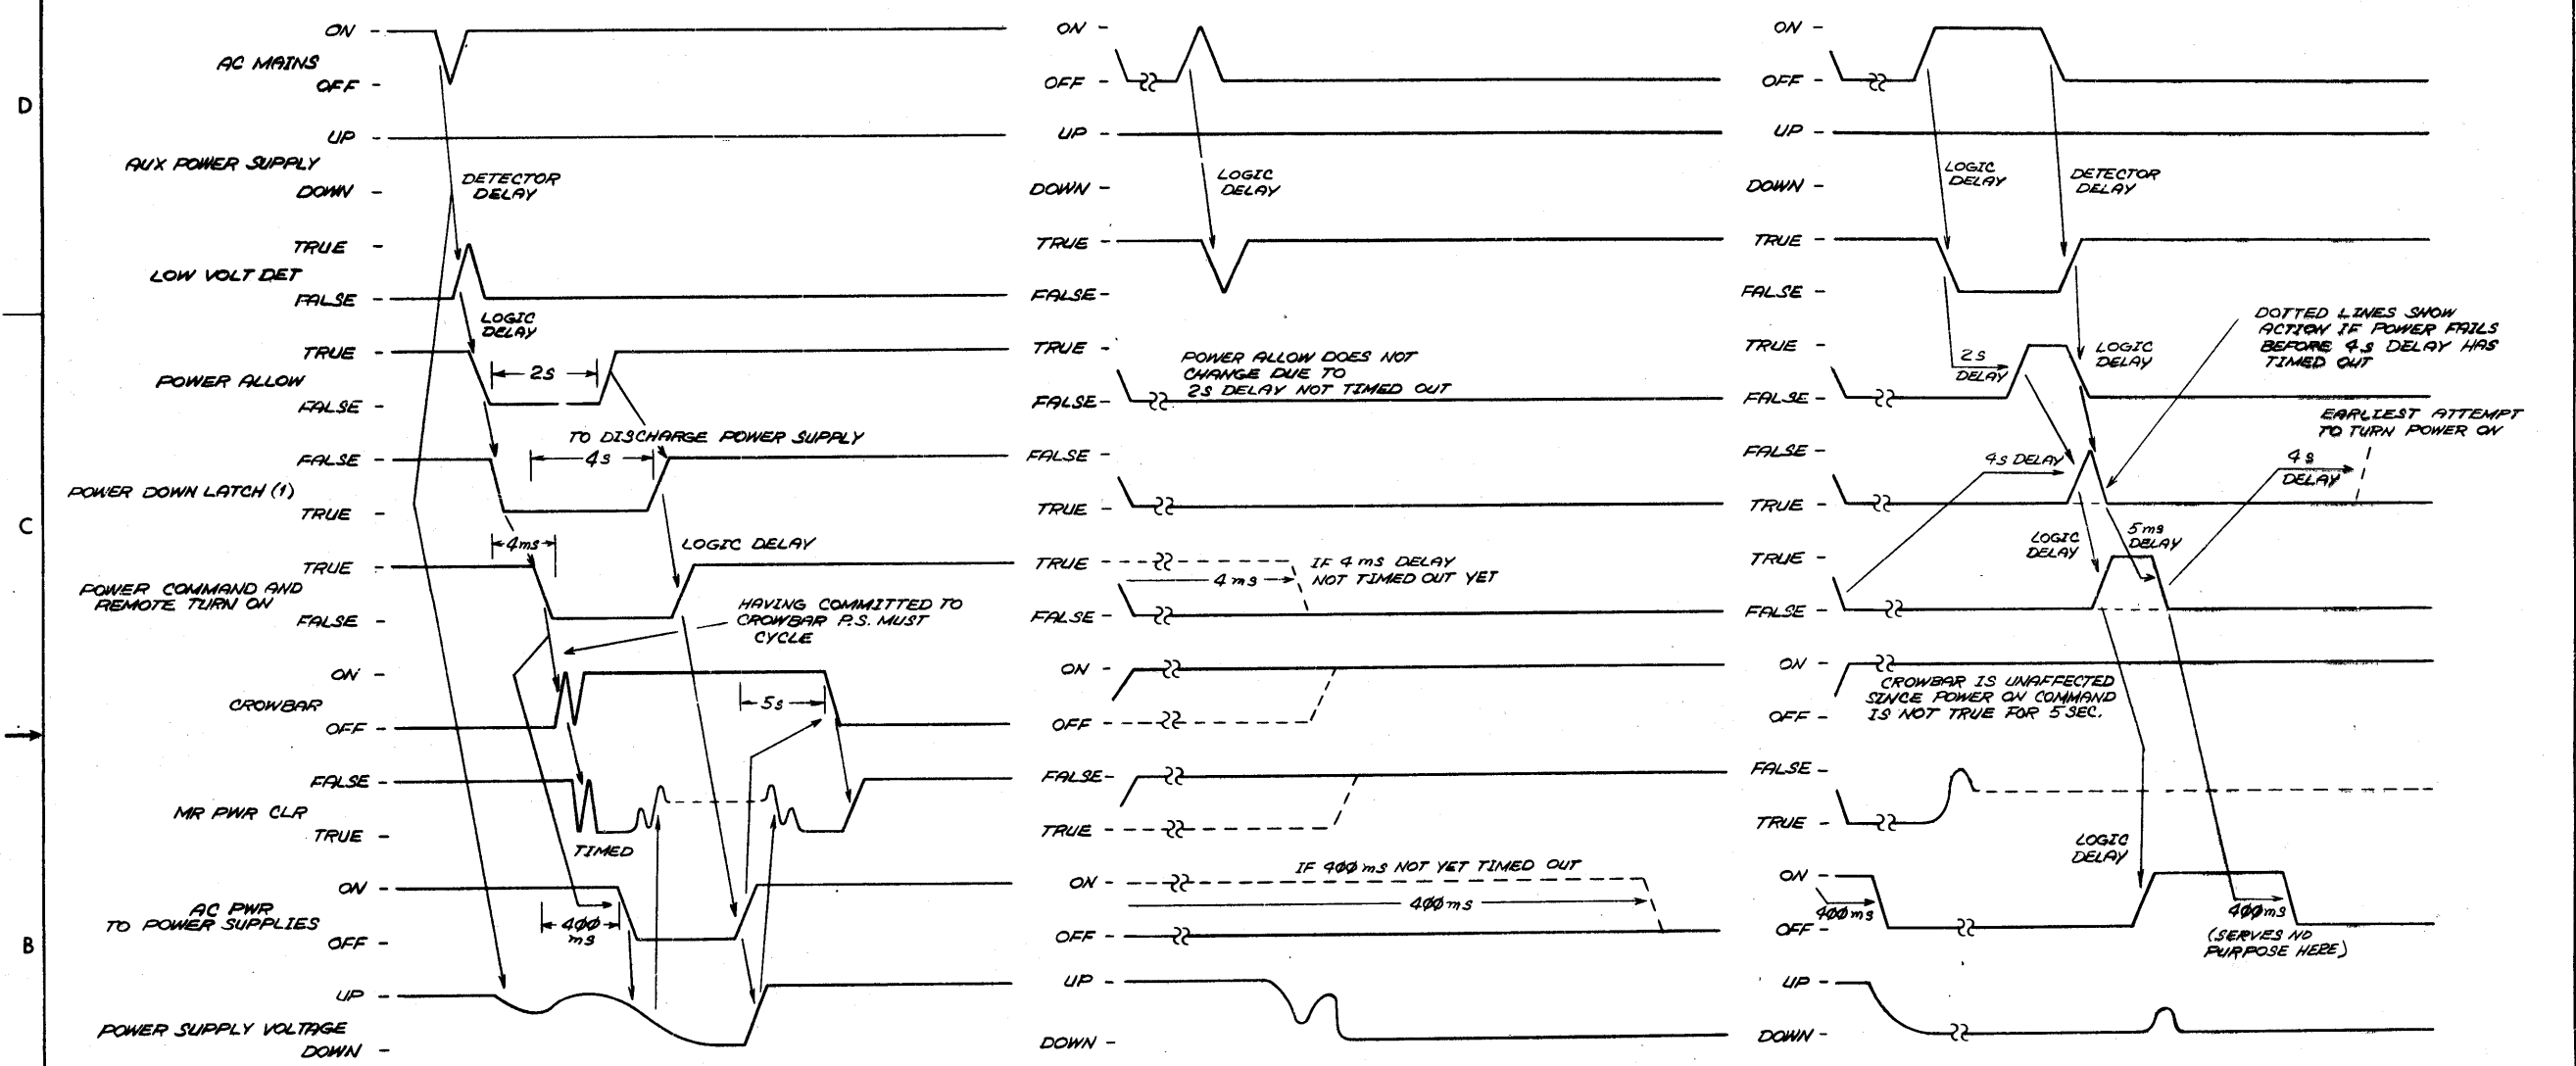 D
C
B
ON
AC MAINS
OFF
UP
AUX POWER SUPPLY
DOWN
DETECTOR
DELAY
TRUE
LOW VOLT DET
FALSE
LOGIC
DELAY
TRUE
2s
POWER ALLOW
FALSE
TO DISCHARGE POWER SUPPLY
FALSE
4s
POWER DOWN LATCH (1)
TRUE
4ms
LOGIC DELAY
TRUE
POWER COMMAND AND
REMOTE TURN ON
FALSE
HAVING COMMITTED TO
CROWBAR P.S. MUST
CYCLE
ON
CROWBAR
5s
OFF
FALSE
MR PWR CLR
TRUE
TIMED
ON
AC PWR
TO POWER SUPPLIES
400
ms
OFF
UP
POWER SUPPLY VOLTAGE
DOWN
ON
OFF
UP
LOGIC
DELAY
DOWN
TRUE
FALSE
TRUE
POWER ALLOW DOES NOT
CHANGE DUE TO
2s DELAY NOT TIMED OUT
FALSE
FALSE
TRUE
TRUE
IF 4 ms DELAY
NOT TIMED OUT YET
4ms
FALSE
ON
OFF
FALSE
TRUE
IF 400 ms NOT YET TIMED OUT
ON
400ms
OFF
UP
DOWN
ON
OFF
UP
LOGIC
DELAY
DETECTOR
DELAY
DOWN
TRUE
FALSE
DOTTED LINES SHOW
ACTION IF POWER FAILS
BEFORE 4s DELAY HAS
TIMED OUT
TRUE
2s
DELAY
LOGIC
DELAY
FALSE
EARLIEST ATTEMPT
TO TURN POWER ON
FALSE
4s DELAY
4s
DELAY
TRUE
LOGIC
DELAY
5ms
DELAY
TRUE
FALSE
ON
CROWBAR IS UNAFFECTED
SINCE POWER ON COMMAND
IS NOT TRUE FOR 5SEC.
OFF
FALSE
TRUE
LOGIC
DELAY
ON
400ms
400ms
OFF
(SERVES NO
PURPOSE HERE)
UP
DOWN